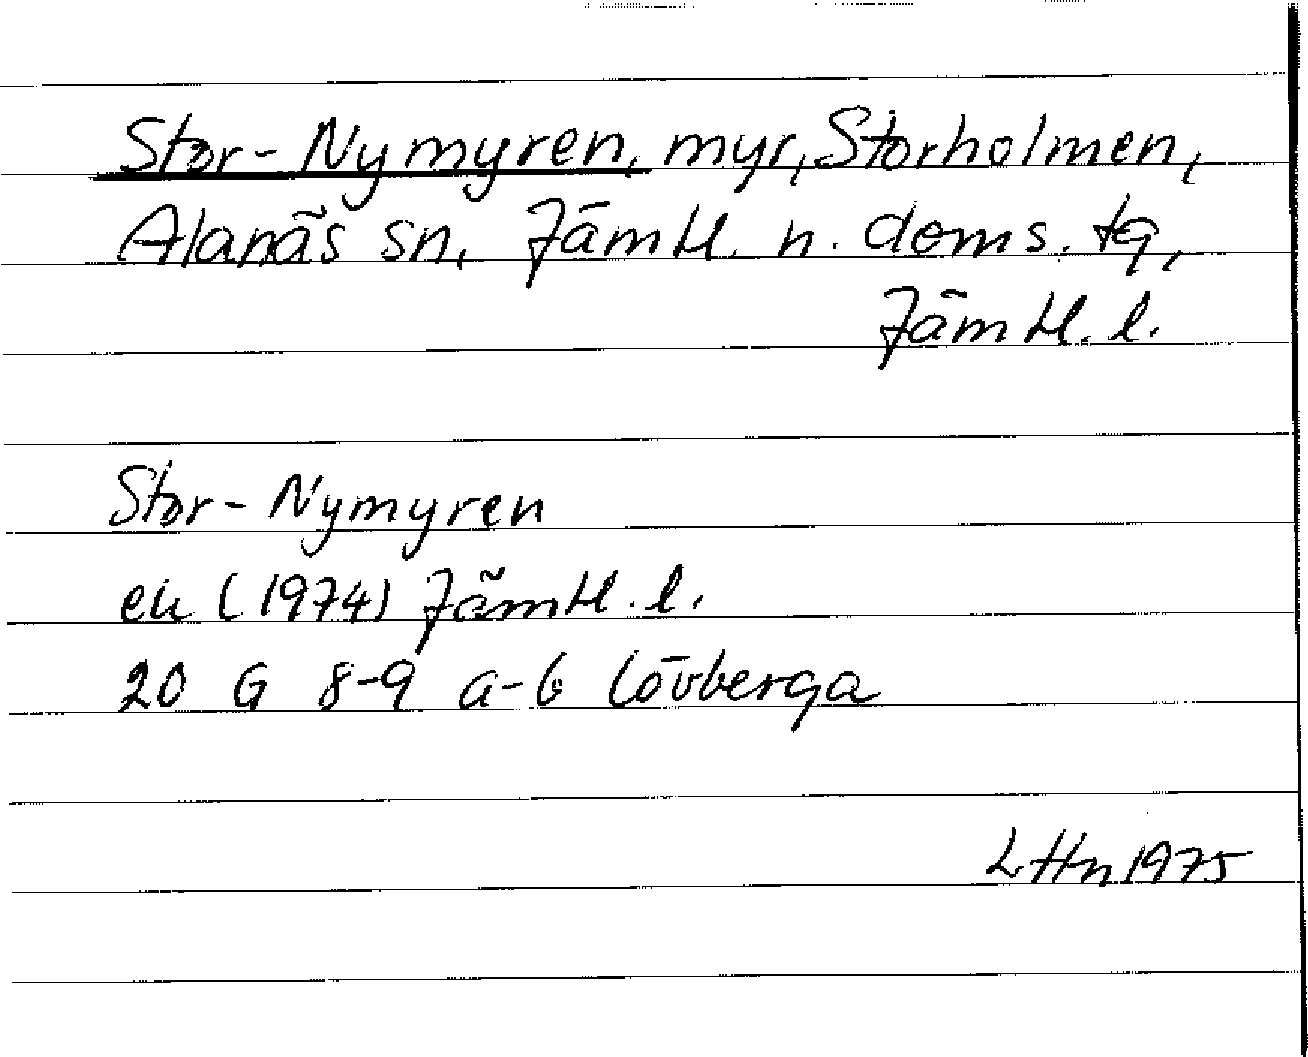 Stor-Nymyren, myr, Storholmen,
Alanäs sn, Jämtl. n. doms. tg,
Jämtl. l.
Stor-Nymyren
ek (1974) Jämtl. l.
20 G 8-9 a-b Lövberga
LHn 1975